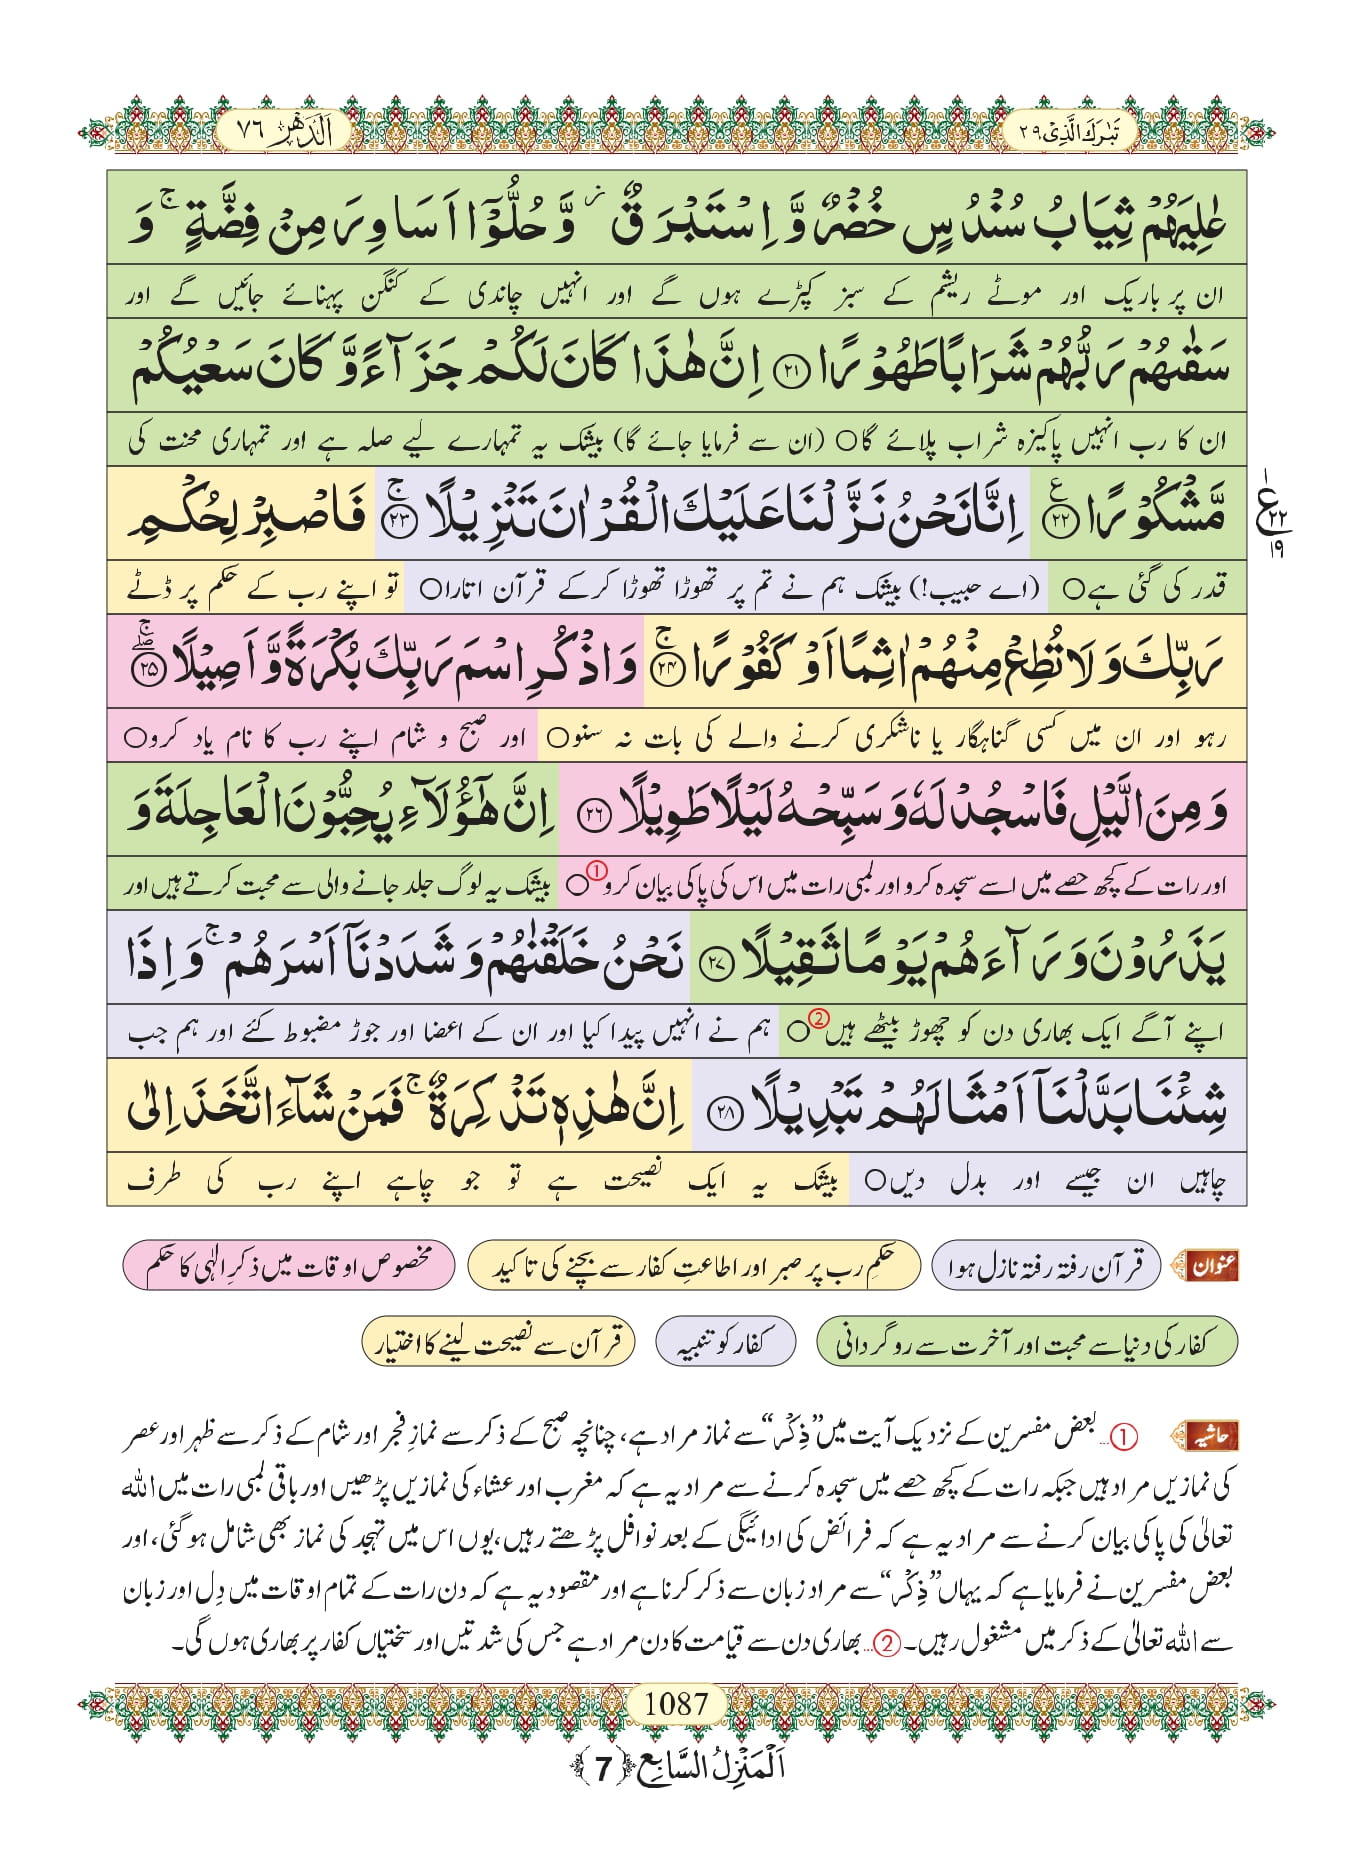 تَبٰرَكَ الَّذِیْ ٢٩
اَلدَّهْر ٧٦
عٰلِیَهُمْ ثِیَابُ سُنْدُسٍ خُضْرٌ وَّ اِسْتَبْرَقٌ٘ وَّ حُلُّوْۤا اَسَاوِرَ مِنْ فِضَّةٍۚ وَ
ان پر باریک اور موٹے ریشم کے سبز کپڑے ہوں گے اور انہیں چاندی کے کنگن پہنائے جائیں گے اور
سَقٰىهُمْ رَبُّهُمْ شَرَابًا طَهُوْرًا ﴿٢١﴾ اِنَّ هٰذَا كَانَ لَكُمْ جَزَآءً وَّ كَانَ سَعْیُكُمْ
ان کا رب انہیں پاکیزہ شراب پلائے گا○ (ان سے فرمایا جائے گا) بیشک یہ تمہارے لیے صلہ ہے اور تمہاری محنت کی
مَّشْكُوْرًا ﴿٢٢﴾ ع اِنَّا نَحْنُ نَزَّلْنَا عَلَیْكَ الْقُرْاٰنَ تَنْزِیْلًا ﴿٢٣﴾ۚ فَاصْبِرْ لِحُكْمِ
ع ٢٢ ١٩
قدر کی گئی ہے○ (اے حبیب!) بیشک ہم نے تم پر تھوڑا تھوڑا کرکے قرآن اتارا○ تو اپنے رب کے حکم پر ڈٹے
رَبِّكَ وَ لَا تُطِعْ مِنْهُمْ اٰثِمًا اَوْ كَفُوْرًا ﴿٢٤﴾ۚ وَ اذْكُرِ اسْمَ رَبِّكَ بُكْرَةً وَّ اَصِیْلًا ﴿٢٥﴾ۖۚ
رہو اور ان میں کسی گناہگار یا ناشکری کرنے والے کی بات نہ سنو○ اور صبح و شام اپنے رب کا نام یاد کرو○
وَ مِنَ الَّیْلِ فَاسْجُدْ لَهٗ وَ سَبِّحْهُ لَیْلًا طَوِیْلًا ﴿٢٦﴾ اِنَّ هٰۤؤُلَآءِ یُحِبُّوْنَ الْعَاجِلَةَ وَ
اور رات کے کچھ حصے میں اسے سجدہ کرو اور لمبی رات میں اس کی پاکی بیان کرو①○ بیشک یہ لوگ جلد جانے والی سے محبت کرتے ہیں اور
یَذَرُوْنَ وَرَآءَهُمْ یَوْمًا ثَقِیْلًا ﴿٢٧﴾ نَحْنُ خَلَقْنٰهُمْ وَ شَدَدْنَاۤ اَسْرَهُمْۚ وَ اِذَا
اپنے آگے ایک بھاری دن کو چھوڑ بیٹھے ہیں②○ ہم نے انہیں پیدا کیا اور ان کے اعضا اور جوڑ مضبوط کئے اور ہم جب
شِئْنَا بَدَّلْنَاۤ اَمْثَالَهُمْ تَبْدِیْلًا ﴿٢٨﴾ اِنَّ هٰذِهٖ تَذْكِرَةٌۚ فَمَنْ شَآءَ اتَّخَذَ اِلٰى
چاہیں ان جیسے اور بدل دیں○ بیشک یہ ایک نصیحت ہے تو جو چاہے اپنے رب کی طرف
عنوان قرآن رفتہ رفتہ نازل ہوا حکمِ رب پر صبر اور اطاعتِ کفار سے بچنے کی تاکید مخصوص اوقات میں ذکرِ الٰہی کا حکم
کفار کی دنیا سے محبت اور آخرت سے روگردانی کفار کو تنبیہ قرآن سے نصیحت لینے کا اختیار
حاشیہ ①... بعض مفسرین کے نزدیک آیت میں ”ذِکْر“ سے نماز مراد ہے، چنانچہ صبح کے ذکر سے نمازِ فجر اور شام کے ذکر سے ظہر اور عصر
کی نمازیں مراد ہیں جبکہ رات کے کچھ حصے میں سجدہ کرنے سے مراد یہ ہے کہ مغرب اور عشاء کی نمازیں پڑھیں اور باقی لمبی رات میں اللہ
تعالیٰ کی پاکی بیان کرنے سے مراد یہ ہے کہ فرائض کی ادائیگی کے بعد نوافل پڑھتے رہیں، یوں اس میں تہجد کی نماز بھی شامل ہوگئی، اور
بعض مفسرین نے فرمایا ہے کہ یہاں ”ذِکْر“ سے مراد زبان سے ذکر کرنا ہے اور مقصود یہ ہے کہ دن رات کے تمام اوقات میں دِل اور زبان
سے اللہ تعالیٰ کے ذکر میں مشغول رہیں۔ ②... بھاری دن سے قیامت کا دن مراد ہے جس کی شدتیں اور سختیاں کفار پر بھاری ہوں گی۔
1087
اَلْمَنْزِلُ السَّابِع ﴿7﴾